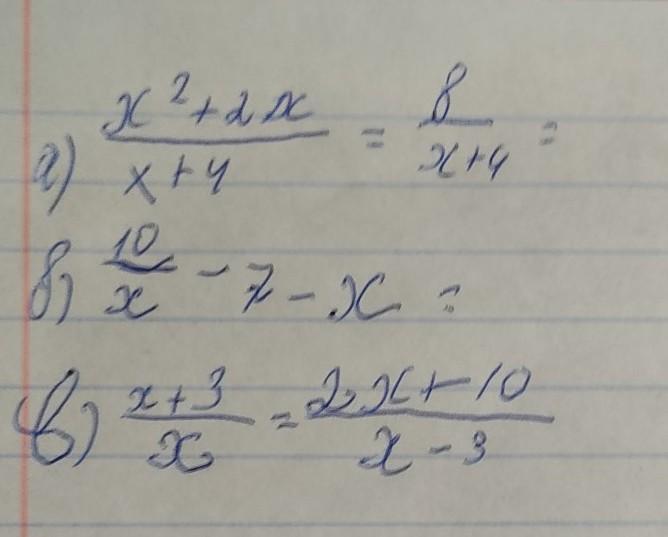 а) (x² + 2x)/(x + 4) = 8/(x + 4) =
б) 10/x - 7 - x =
в) (x + 3)/x = (2x + 10)/(x - 3)